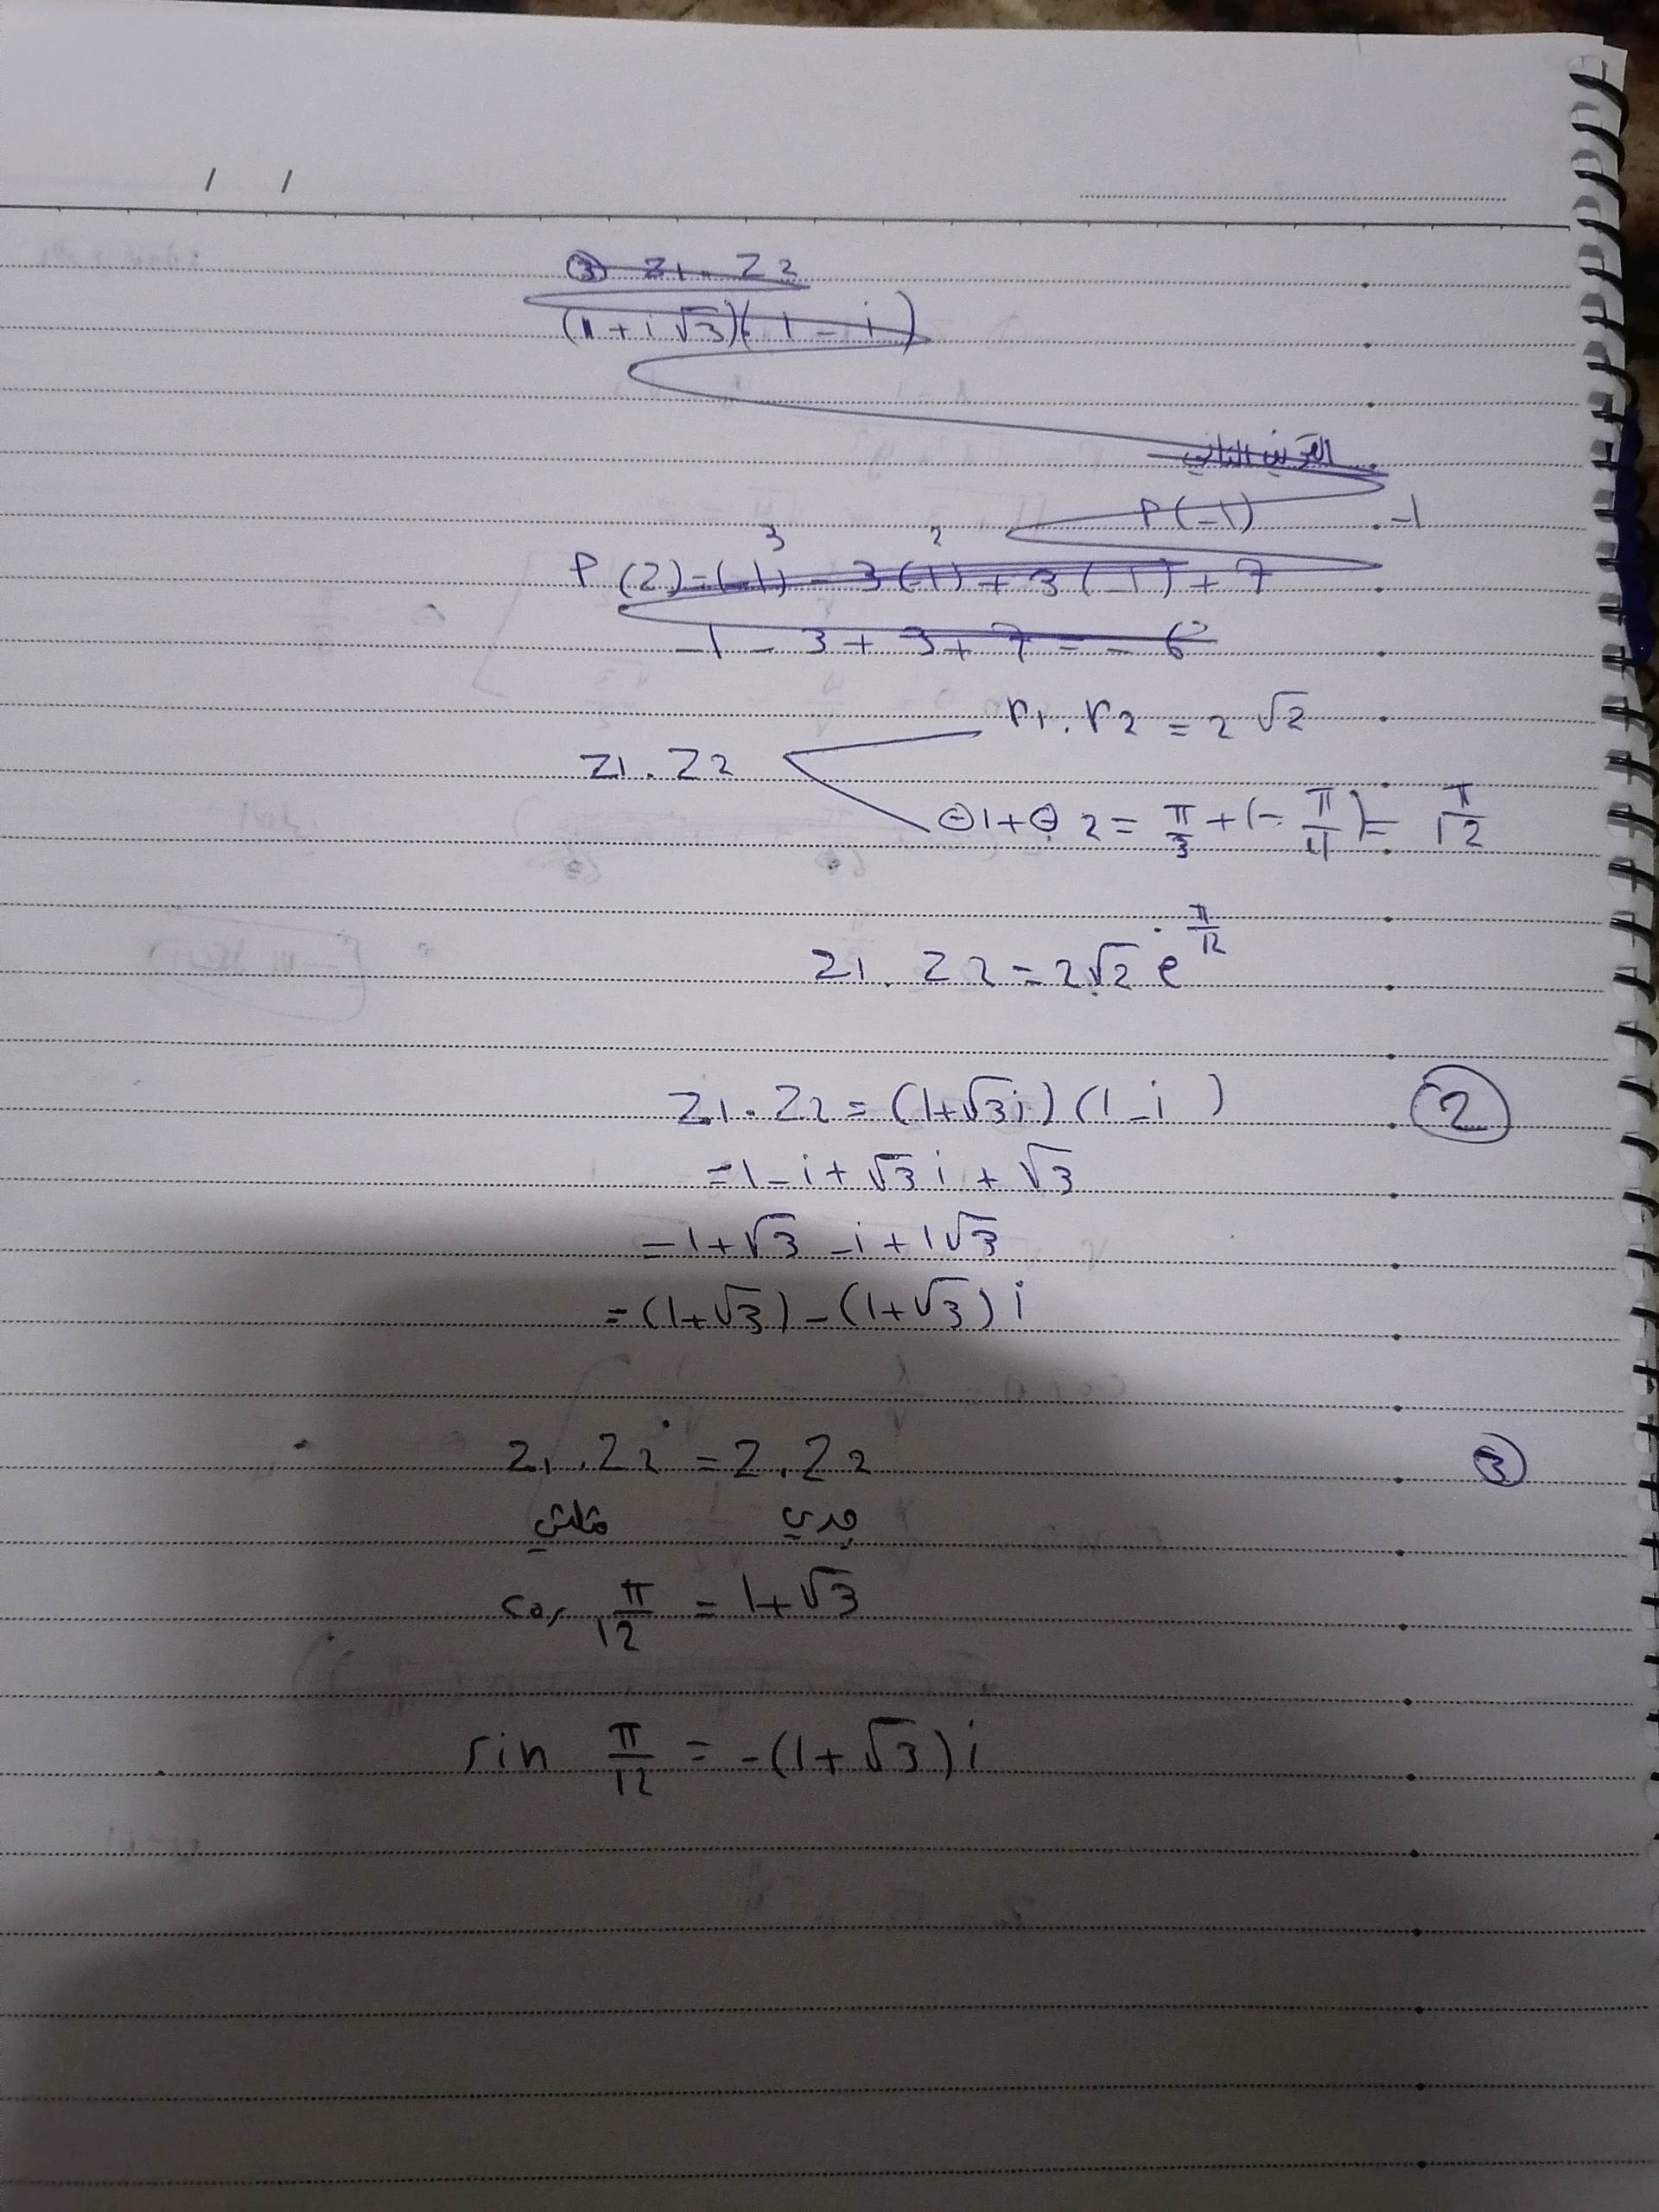 / /
③ Z1. Z2
(1+i√3)(1-i)
التمرين الثاني
P(-1) -1
P(2)=(-1)³-3(-1)²+3(-1)+7
-1-3+3+7=-6
r1.r2=2√2
Z1.Z2
θ1+θ2=π/3+(-π/4)=π/12
Z1.Z2=2√2 e^π/12
Z1.Z2=(1+√3i)(1-i) ②
=1-i+√3i+√3
=1+√3-i+i√3
=(1+√3)-(1+√3)i
Z1.Z2=Z1.Z2 ③
مثلثي جبري
cos π/12=1+√3
sin π/12=-(1+√3)i